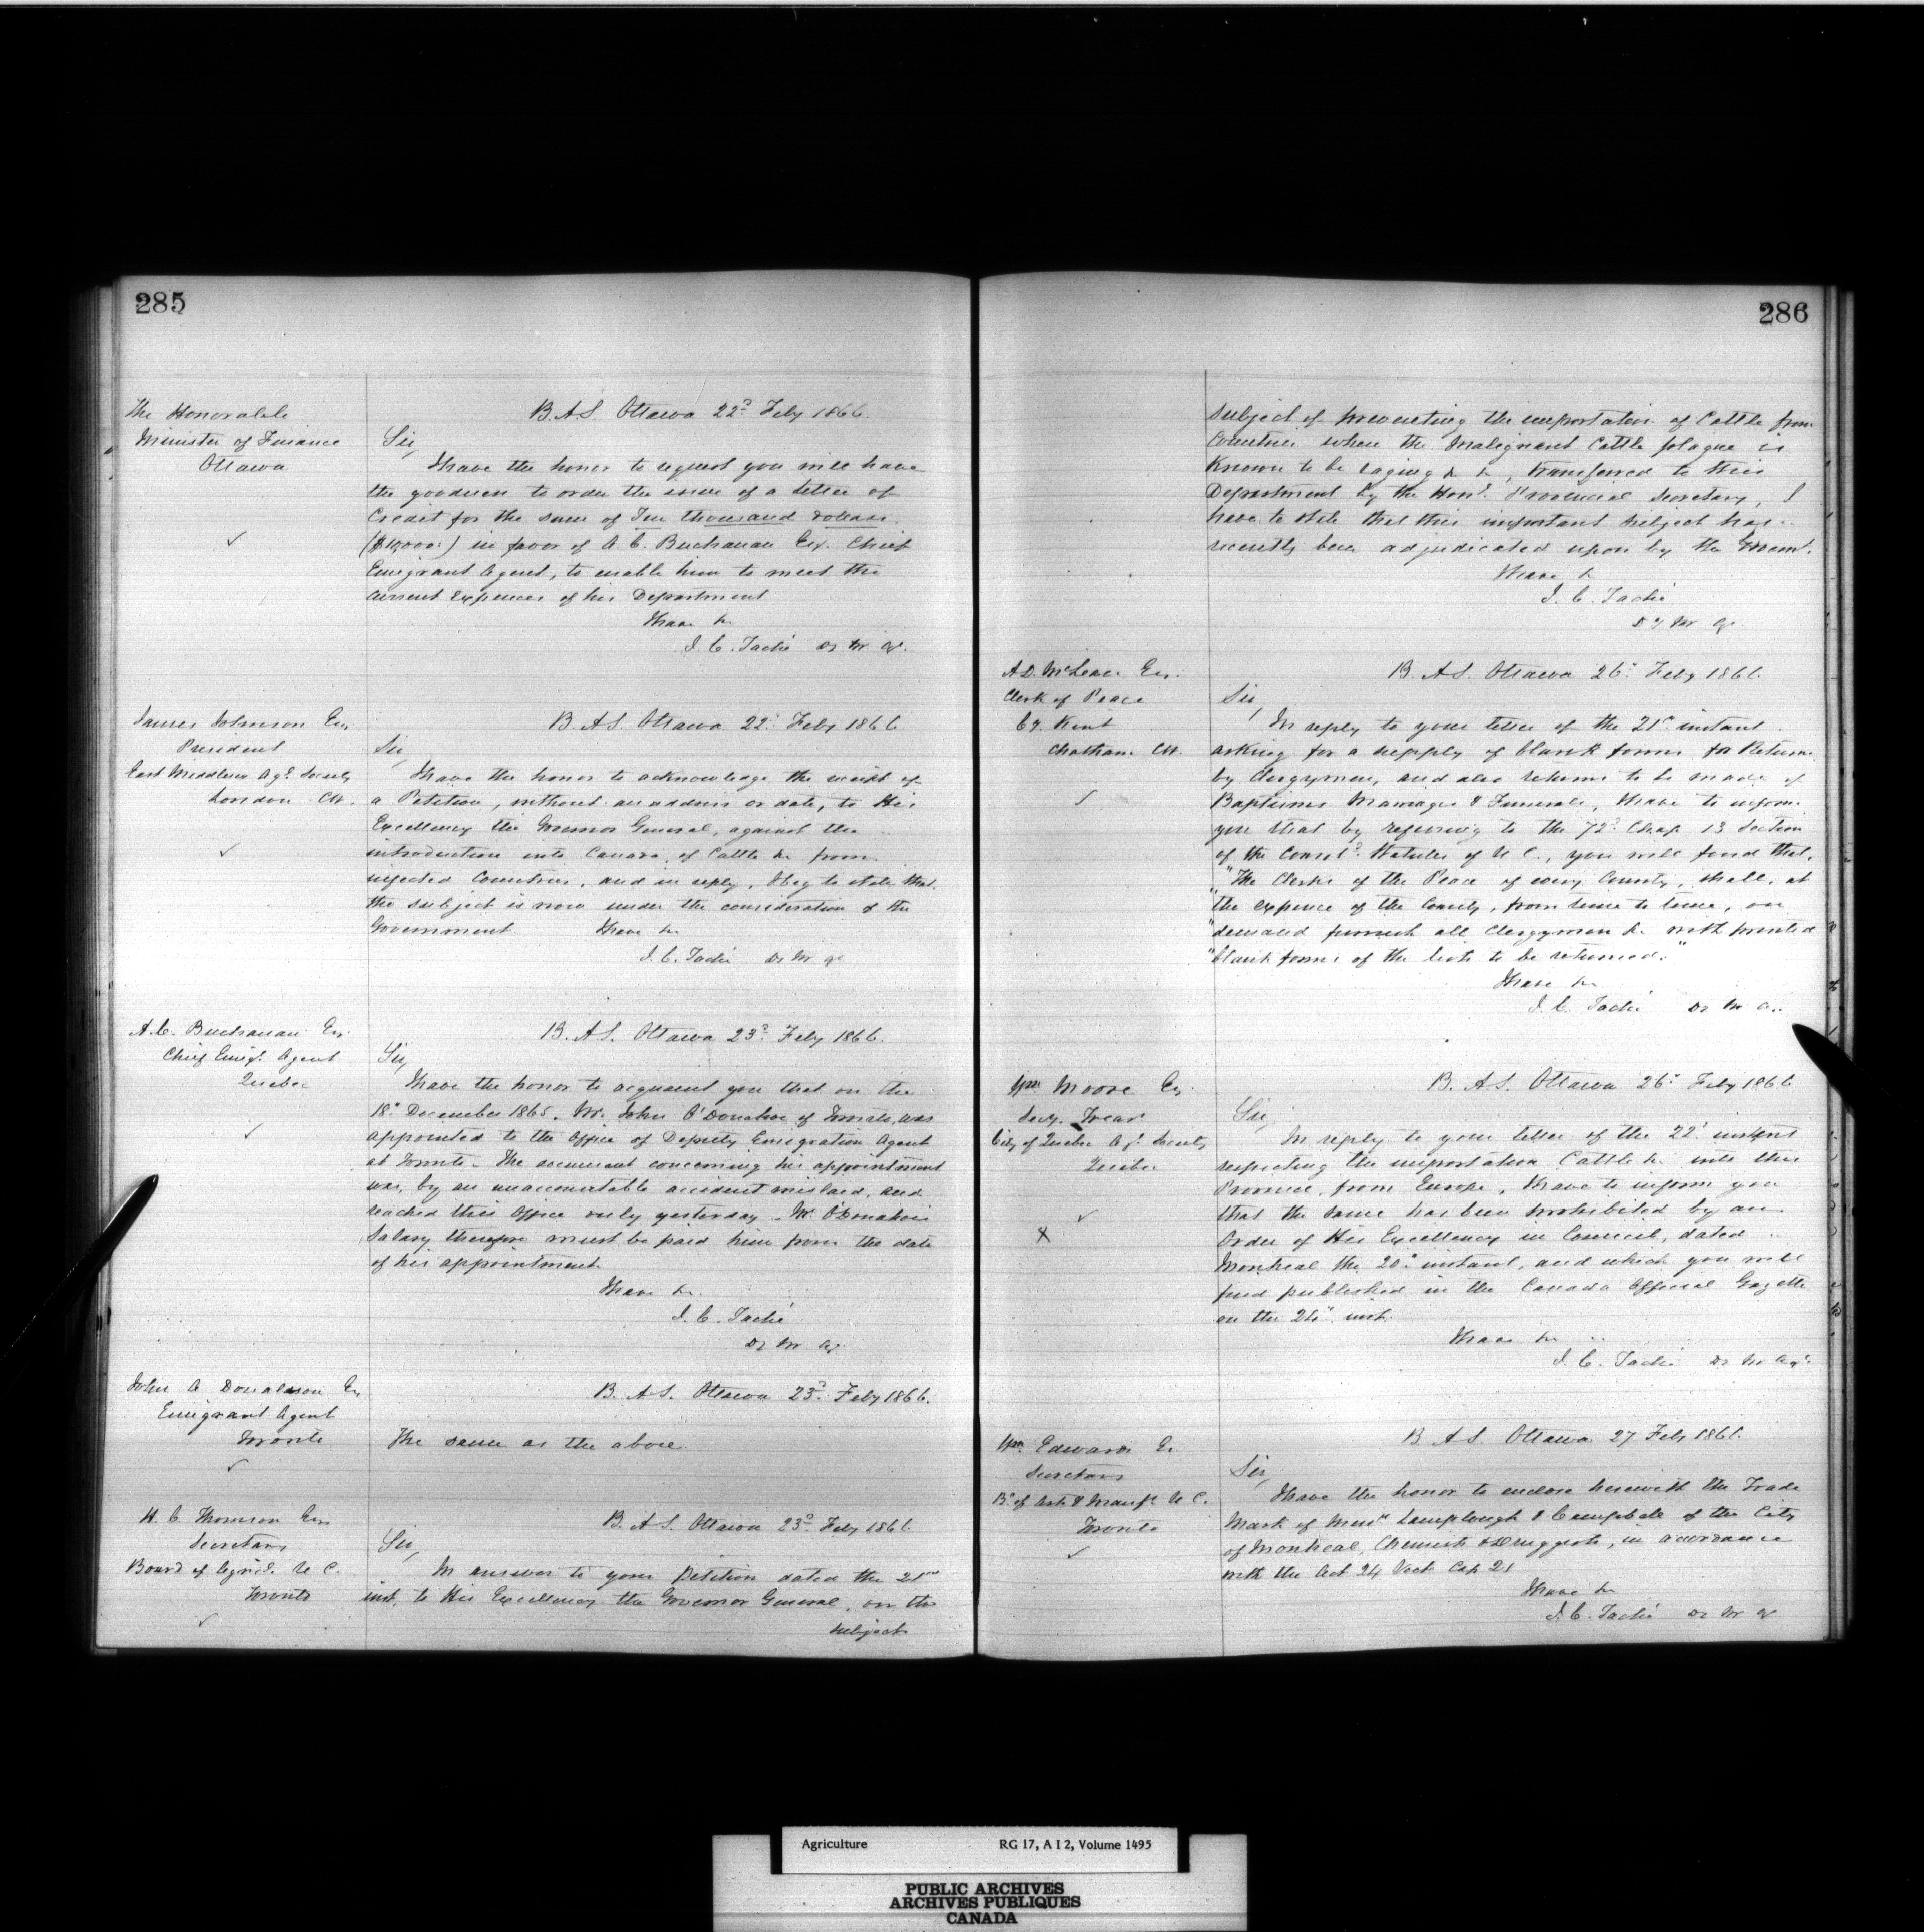 285
The Honorable
Minister of Finance
Ottawa
B. A. S. Ottawa 22d Feby 1866
Sir,
I have the honor to request you will have
the goodness to order the issue of a Letter of
Credit for the sum of Ten thousand dollars
($10,000.) in favor of A. C. Buchanan Esq. Chief
Emigrant Agent, to enable him to meet the
current expences of his Department
I have &c
J. C. Taché Dy M Ag.
James Johnson Esq
President
East Middlesex Agl. Society
London CW.
B. A. S. Ottawa 22d Feby 1866
Sir,
I have the honor to acknowledge the receipt of
a Petition, without an address or date, to His
Excellency the Governor General, against the
introduction into Canada, of Cattle &c from
infected Countries, and in reply, I beg to state that
the subject is now under the consideration of the
Government. I have &c
J. C. Taché Dy M Ag
A. C. Buchanan Esq.
Chief Emigt. Agent
Quebec
B. A. S. Ottawa 23d Feby 1866.
Sir,
I have the honor to acquaint you that on the
18th December 1865. Mr. John O'Donahoe of Toronto, was
appointed to the Office of Deputy Emigration Agent
at Toronto. The document concerning his appointment
was, by an unaccountable accident mislaid, and
reached this Office only yesterday. Mr. O'Donahoe's
Salary therefore must be paid him from the date
of his appointment.
I have &c.
J. C. Taché
Dy M Ag.
John A Donaldson Esq
Emigrant Agent
Toronto
B. A. S. Ottawa 23d Feby 1866.
The same as the above.
H. C. Thomson Esq
Secretary
Board of Agricl. U C.
Toronto
B. A. S. Ottawa 23d Feby 1866.
Sir,
In answer to your Petition dated the 21st
inst. to His Excellency the Governor General, on the
subject
286
subject of preventing the importation of Cattle from
Countries where the Malignant Cattle plague is
known to be raging &c &c, transferred to this
Department by the Honl. Provincial Secretary, I
have to state that this important subject has
recently been adjudicated upon by the Governmt.
I have &c
J. C. Taché
Dy M Ag.
A. D. McLean Esq.
Clerk of Peace
Cy. Kent
Chatham CW.
B. A. S. Ottawa 26th Feby 1866.
Sir,
In reply to your letter of the 21st instant
asking for a supply of blank forms for Returns
by Clergymen, and also returns to be made of
Baptisms Marriages & Funerals, I have to inform
you that by referring to the 72d Chap 13 Section
of the Consold. Statutes of U C., you will find that,
"The Clerks of the Peace of every County, shall, at
"the expence of the County, from time to time, on
"demand furnish all Clergymen &c with printed
"blank forms of the lists to be returned."
I have &c
J. C. Taché Dy M Ag.
Wm Moore Esq
Secy. Treasr
City of Quebec Agl. Society
Quebec
B. A. S. Ottawa 26th Feby 1866
Sir,
In reply to your letter of the 22d instant
respecting the importation Cattle &c into this
Province, from Europe, I have to inform you
that the same has been prohibited by an
Order of His Excellency in Council, dated
Montreal the 20th instant, and which you will
find published in the Canada Official Gazette
on the 24th inst.
I have &c
J. C. Taché Dy M Agr.
Wm. Edwards Es.
Secretary
Bd. of Arts & Manufs U C.
Toronto
B A S. Ottawa 27 Feby 1866.
Sir,
I have the honor to enclose herewith the Trade
Mark of Messrs Lamplough & Campbell of the City
of Montreal, Chemists & Druggists, in accordance
with the Act 24 Vict Cap 21
I have &c
J. C. Taché Dy M Ag
Agriculture RG 17, A I 2, Volume 1495
PUBLIC ARCHIVES
ARCHIVES PUBLIQUES
CANADA